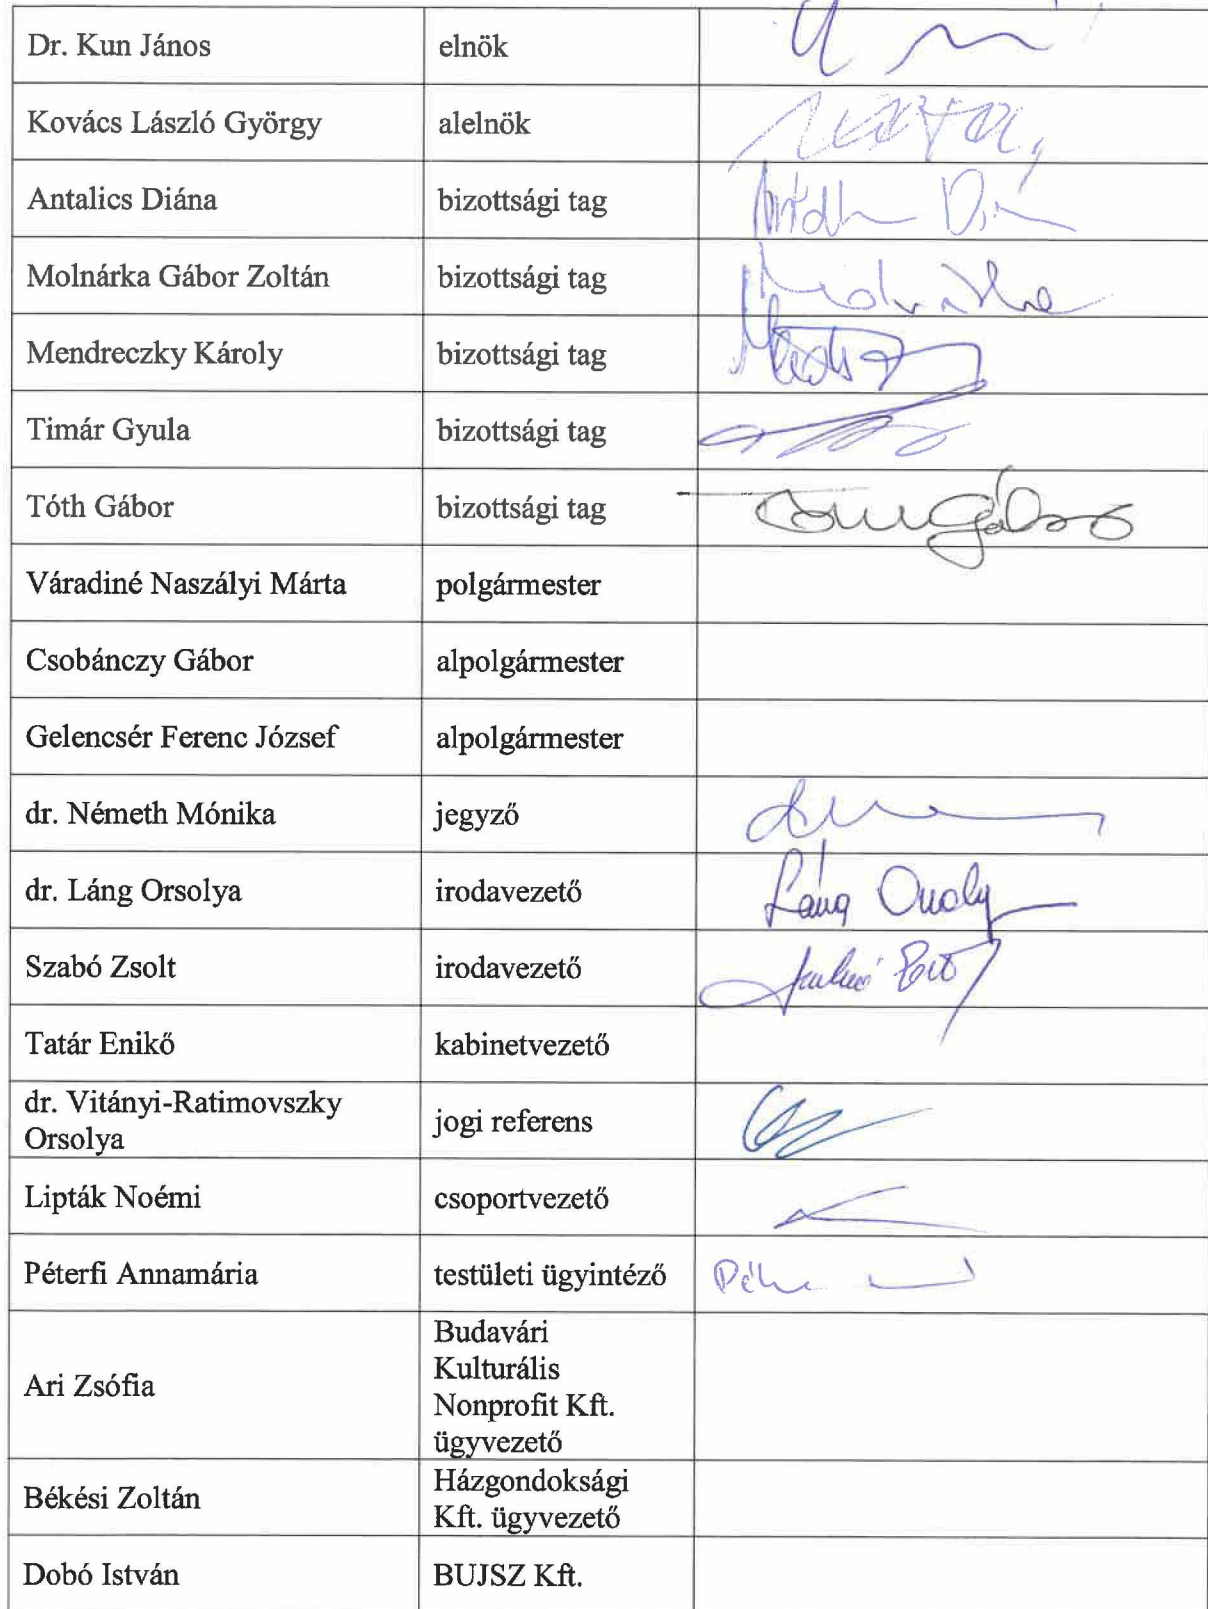 Dr. Kun János elnök
Kovács László György alelnök
Antalics Diána bizottsági tag
Molnárka Gábor Zoltán bizottsági tag
Mendreczky Károly bizottsági tag
Timár Gyula bizottsági tag
Tóth Gábor bizottsági tag
Váradiné Naszályi Márta polgármester
Csobánczy Gábor alpolgármester
Gelencsér Ferenc József alpolgármester
dr. Németh Mónika jegyző
dr. Láng Orsolya irodavezető Láng Orsoly
Szabó Zsolt irodavezető
Tatár Enikő kabinetvezető
dr. Vitányi-Ratimovszky
Orsolya
jogi referens
Lipták Noémi csoportvezető
Péterfi Annamária testületi ügyintéző
Ari Zsófia
Budavári
Kulturális
Nonprofit Kft.
ügyvezető
Békési Zoltán
Házgondoksági
Kft. ügyvezető
Dobó István BUJSZ Kft.